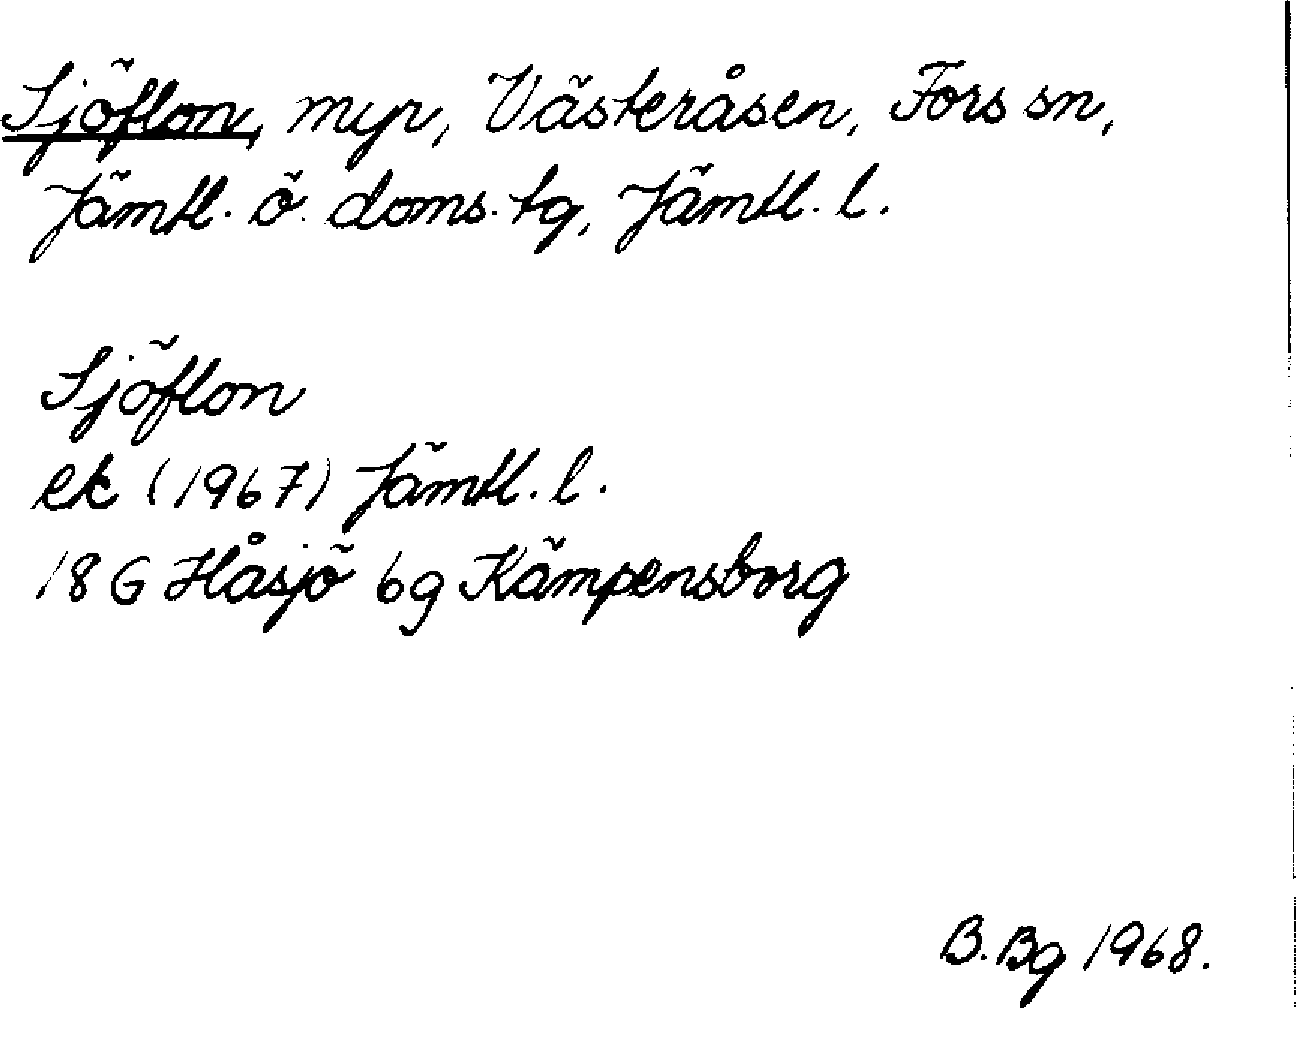 Sjöflon, myr, Västeråsen, Fors sn,
Jämtl. ö. doms. tg, Jämtl. l.
Sjöflon
ek (1967) Jämtl. l.
18 G Håsjö 6g Kämpensborg
B. Bg 1968.